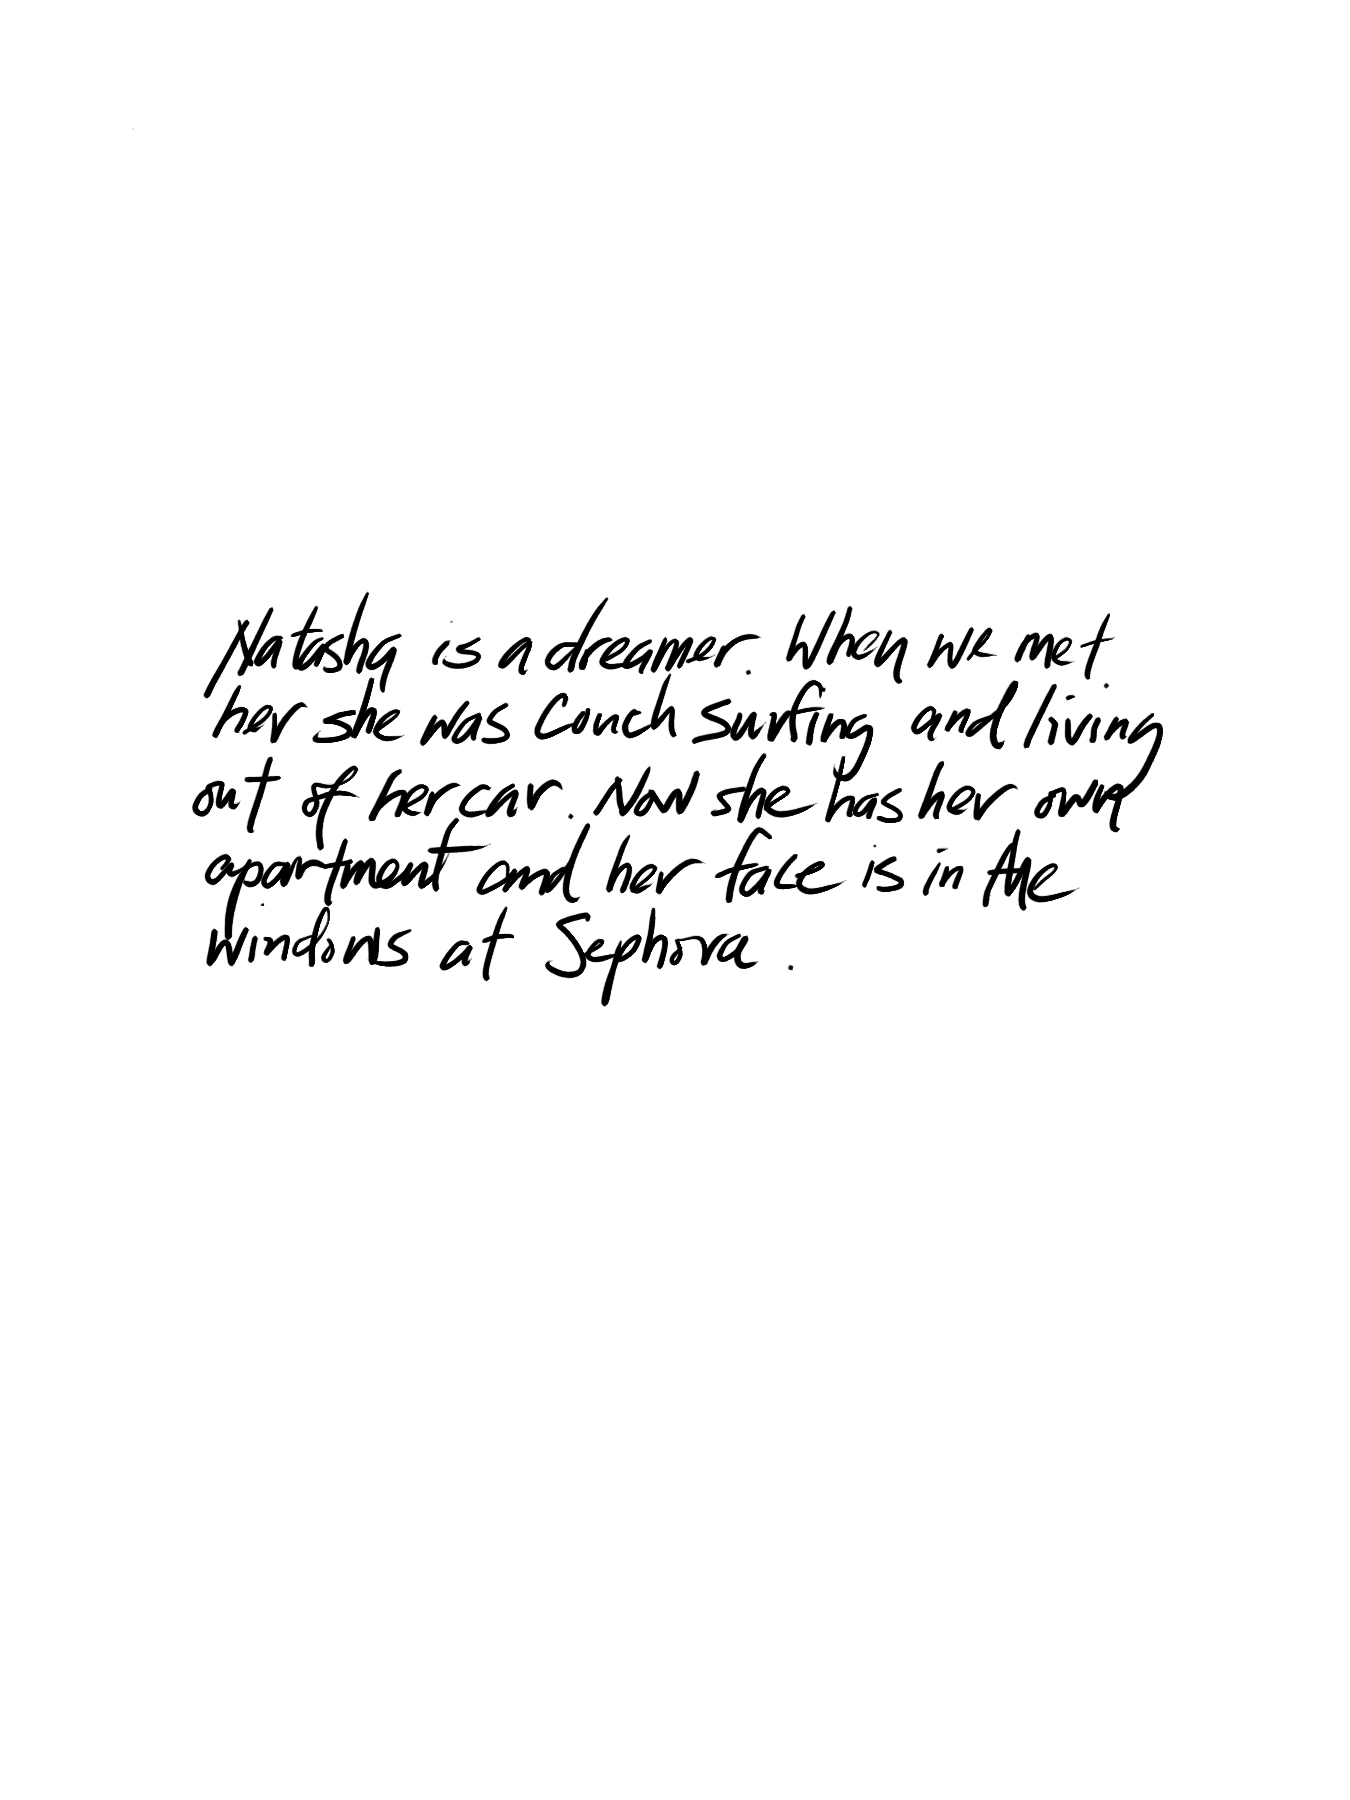 Natasha is a dreamer. When we met
her she was Couch surfing and living
out of her car. Now she has her own
apartment and her face is in the
windows at Sephora.